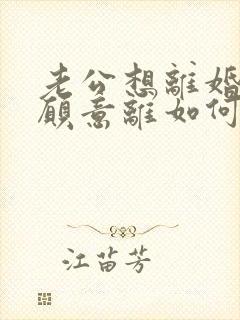 老公想離婚
願意離如何
江苗芳